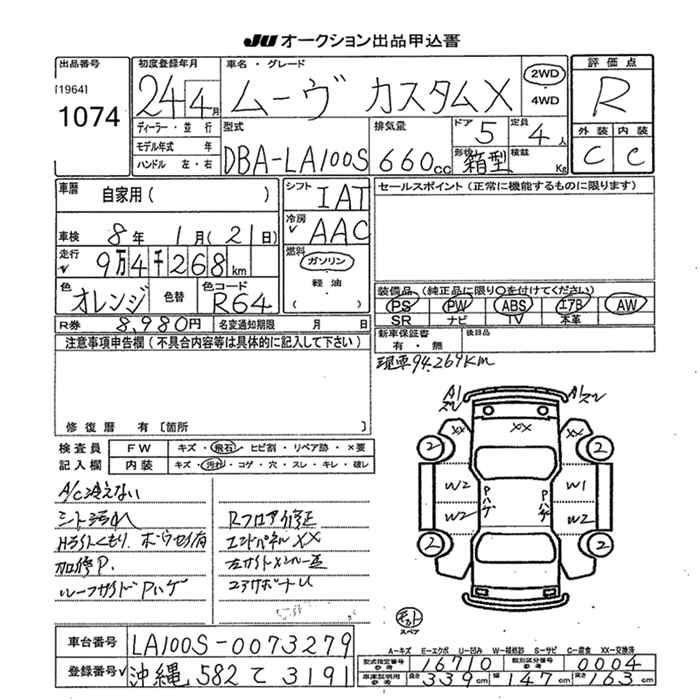 JU オークション出品申込書
出品番号
[1964]
1074
初度登録年月
24 4月
ディーラー・並行
モデル年式 年
ハンドル 左・右
車名・グレード
ムーヴ カスタムX
2WD
4WD
評価点
R
型式
DBA-LA100S
排気量
660cc
ドア
5
定員
4人
形状
箱型
積載
Kg
外装 内装
C C
車歴
自家用( )
車検 8年 1月(21日)
走行
9万4千268km
色
オレンジ
色替
色コード
R64
シフト
IAT
冷房
AAC
燃料
ガソリン
軽油
( )
セールスポイント(正常に機能するものに限ります)
装備品(純正品に限り○を付けてください)
PS PW ABS エアB AW
SR ナビ TV 本革
R券 8,980円 名変通知期限 月 日
新車保証書
有・無
後日品
注意事項申告欄(不具合内容等は具体的に記入して下さい)
現車94,269km
修復歴 有〔箇所 〕
検査員
記入欄
FW キズ・飛石・ヒビ割・リペア跡・×要
内装 キズ・汚れ・コゲ・穴・スレ・キレ・破レ
A/C冷えない
シート汚れ
Hライトくもり、
加修P.
ルーフサイドPハゲ
Rフロア修正
エンドパネルXX
コアサポートU
A/ズレ
A/ズレ
XX XX XX
2 2
W2 Pハゲ Pハゲ W1
W2 W2
2 2
スペア
A-キズ E-エクボ U-凹み W-補修跡 S-サビ C-腐食 XX-交換済
車台番号 LA100S-0073279
登録番号 沖縄 582 て 3191
型式指定番号
参考
16710
類別区分番号
参考
0004
車庫証明用
参考
長さ 339cm 幅 147cm 高さ 163cm